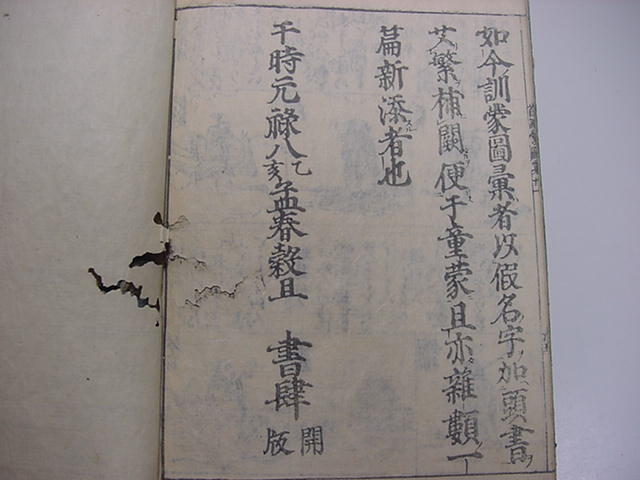 如今訓蒙圖彙者以假名字加頭書ヲ
艾繁補闕便于童蒙且亦雜類一
篇新添者也
于時元祿八乙亥孟春穀旦 書肆開版